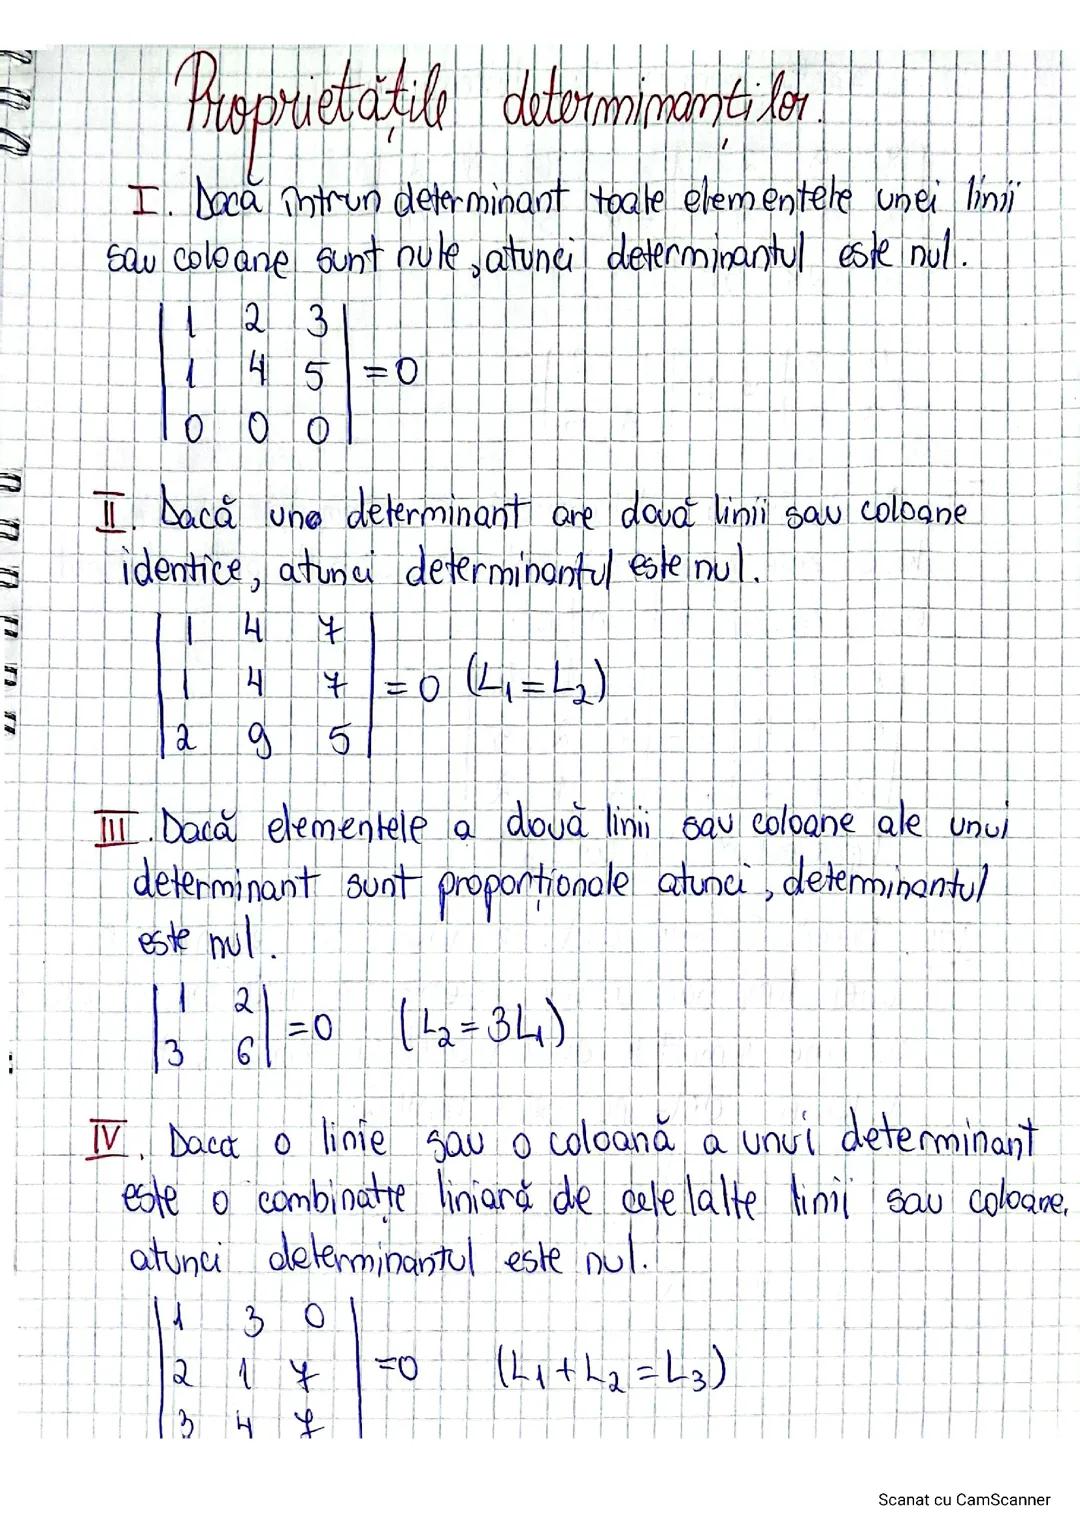 Proprietățile determinanților.
I. Dacă întrun determinant toate elementele unei linii
sau coloane sunt nule, atunci determinantul este nul.
| 1 2 3 |
| 1 4 5 | = 0
| 0 0 0 |
II. Dacă una determinant are două linii sau coloane
identice, atunci determinantul este nul.
| 1 4 7 |
| 1 4 7 | = 0 (L₁=L₂)
| 2 9 5 |
III. Dacă elementele a două linii sau coloane ale unui
determinant sunt proporționale atunci, determinantul
este nul.
| 1 2 |
| 3 6 | = 0 (L₂=3L₁)
IV. Daca o linie sau o coloană a unui determinant
este o combinație liniară de celelalte linii sau coloane,
atunci determinantul este nul.
| 1 3 0 |
| 2 1 7 | = 0 (L₁+L₂=L₃)
| 3 4 7 |
Scanat cu CamScanner